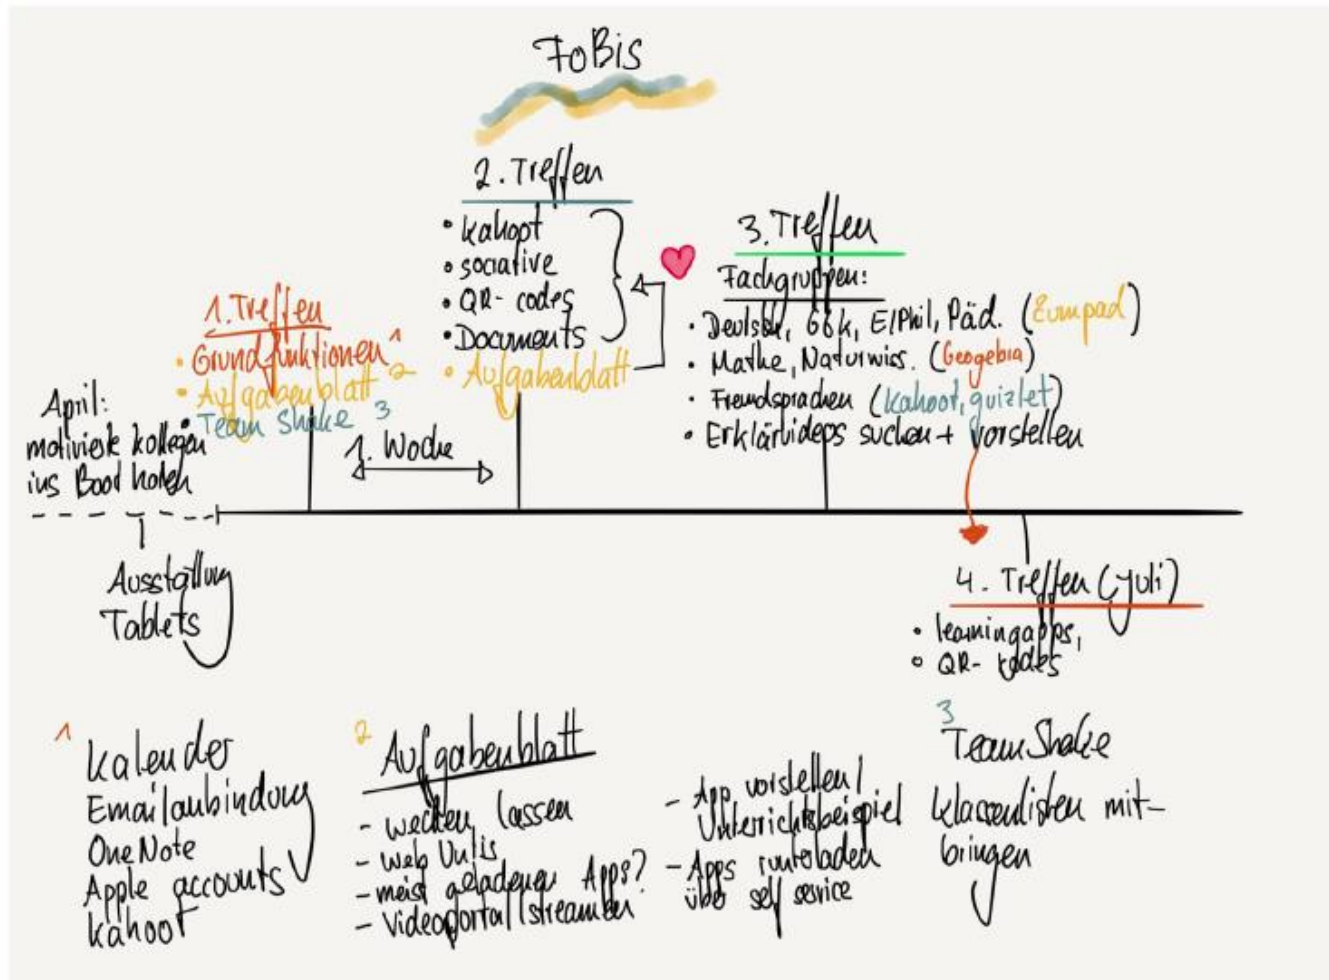 FoBis
2. Treffen
• kahoot
• socrative
• QR-codes
• Documents
• Aufgabenblatt
3. Treffen
Fachgruppen:
• Deutsch, GGk, E/Phil, Päd. (Zumpad)
• Mathe, Naturwiss. (Geogebra)
• Fremdsprachen (kahoot, quizlet)
• Erklärvideos suchen + vorstellen
1. Treffen
• Grundfunktionen 1
• Aufgabenblatt 2
• Team Shake 3
April:
motivierte kollegen
ins Boot holen
1. Woche
Ausstattung
Tablets
4. Treffen (Juli)
• learningapps,
• QR-codes
1
Kalender
Emailanbindung
OneNote
Apple accounts
kahoot
2
Aufgabenblatt
- wecken lassen
- Web Untis
- meist geladenen Apps?
- Videoportal streamen
- App vorstellen /
Unterrichtsbeispiel
- Apps runterladen
über self service
3
TeamShake
Klassenlisten mit-
bringen